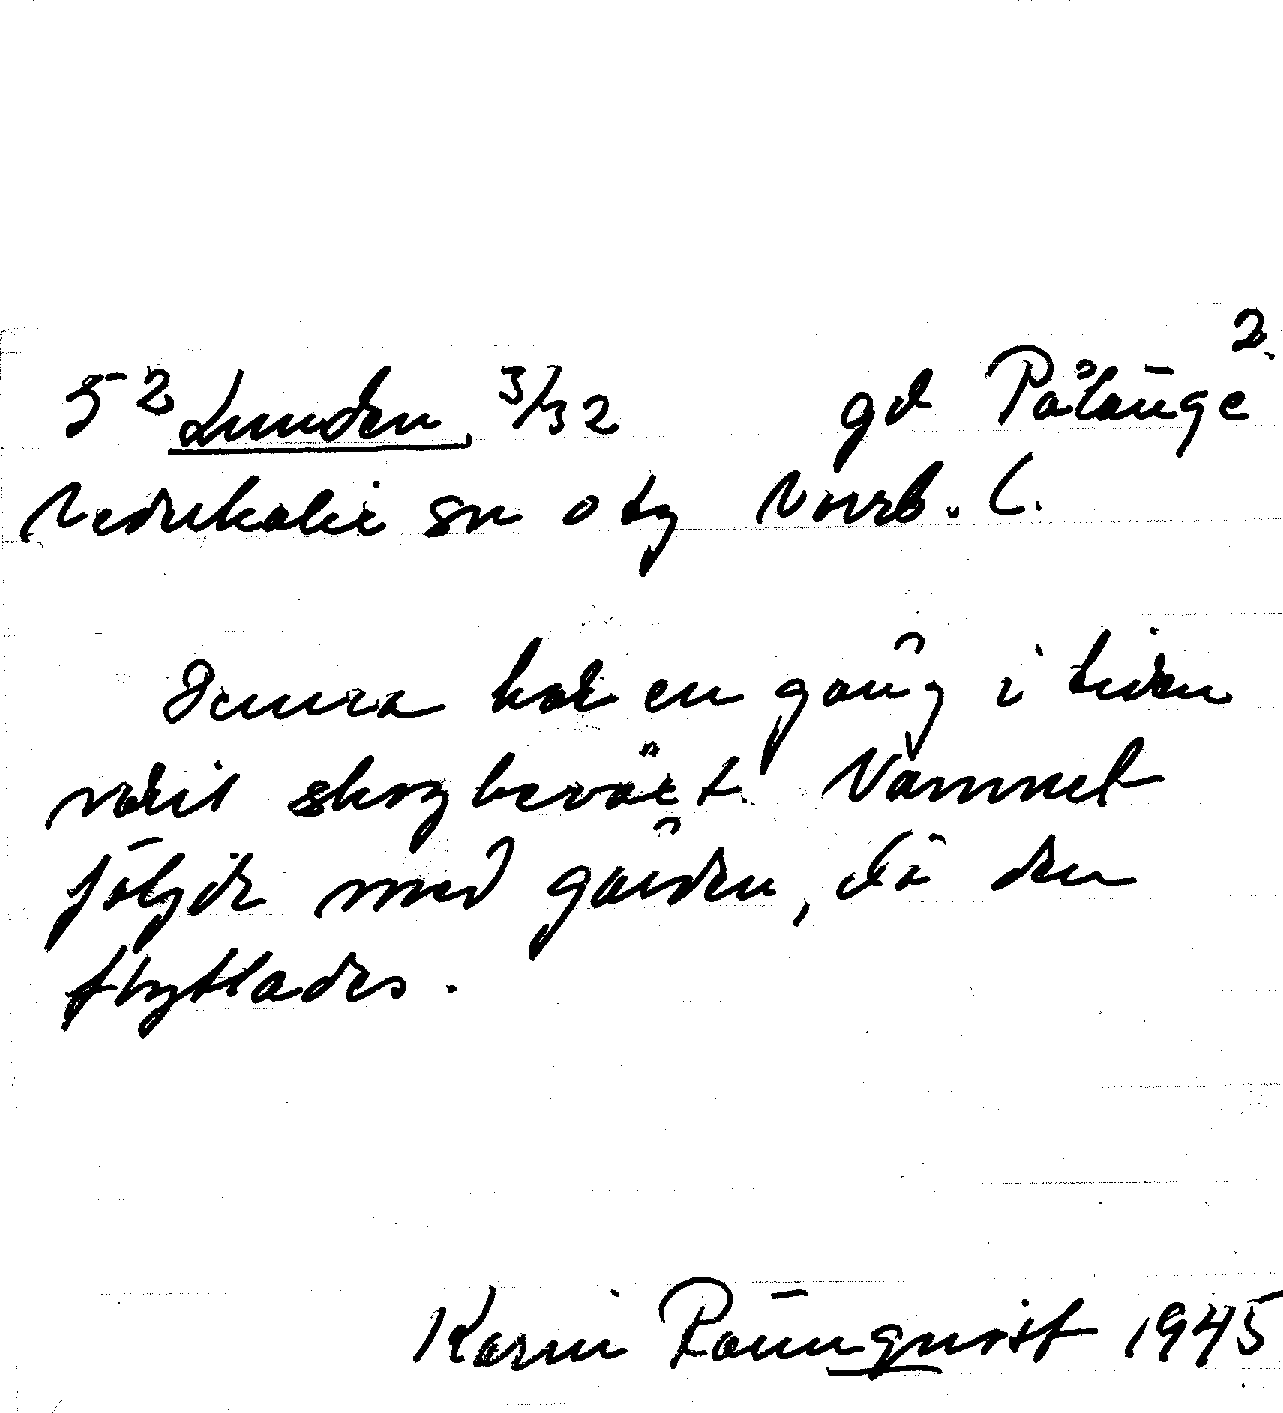 5² Lunden, 3/32 gd Pålänge²
Nederkalix sn o tg Norrb. l.
Denna har en gång i tiden
varit skogbeväxt. Namnet
följde med gården, då den
flyttades.
Karin Rönnqvist 1945